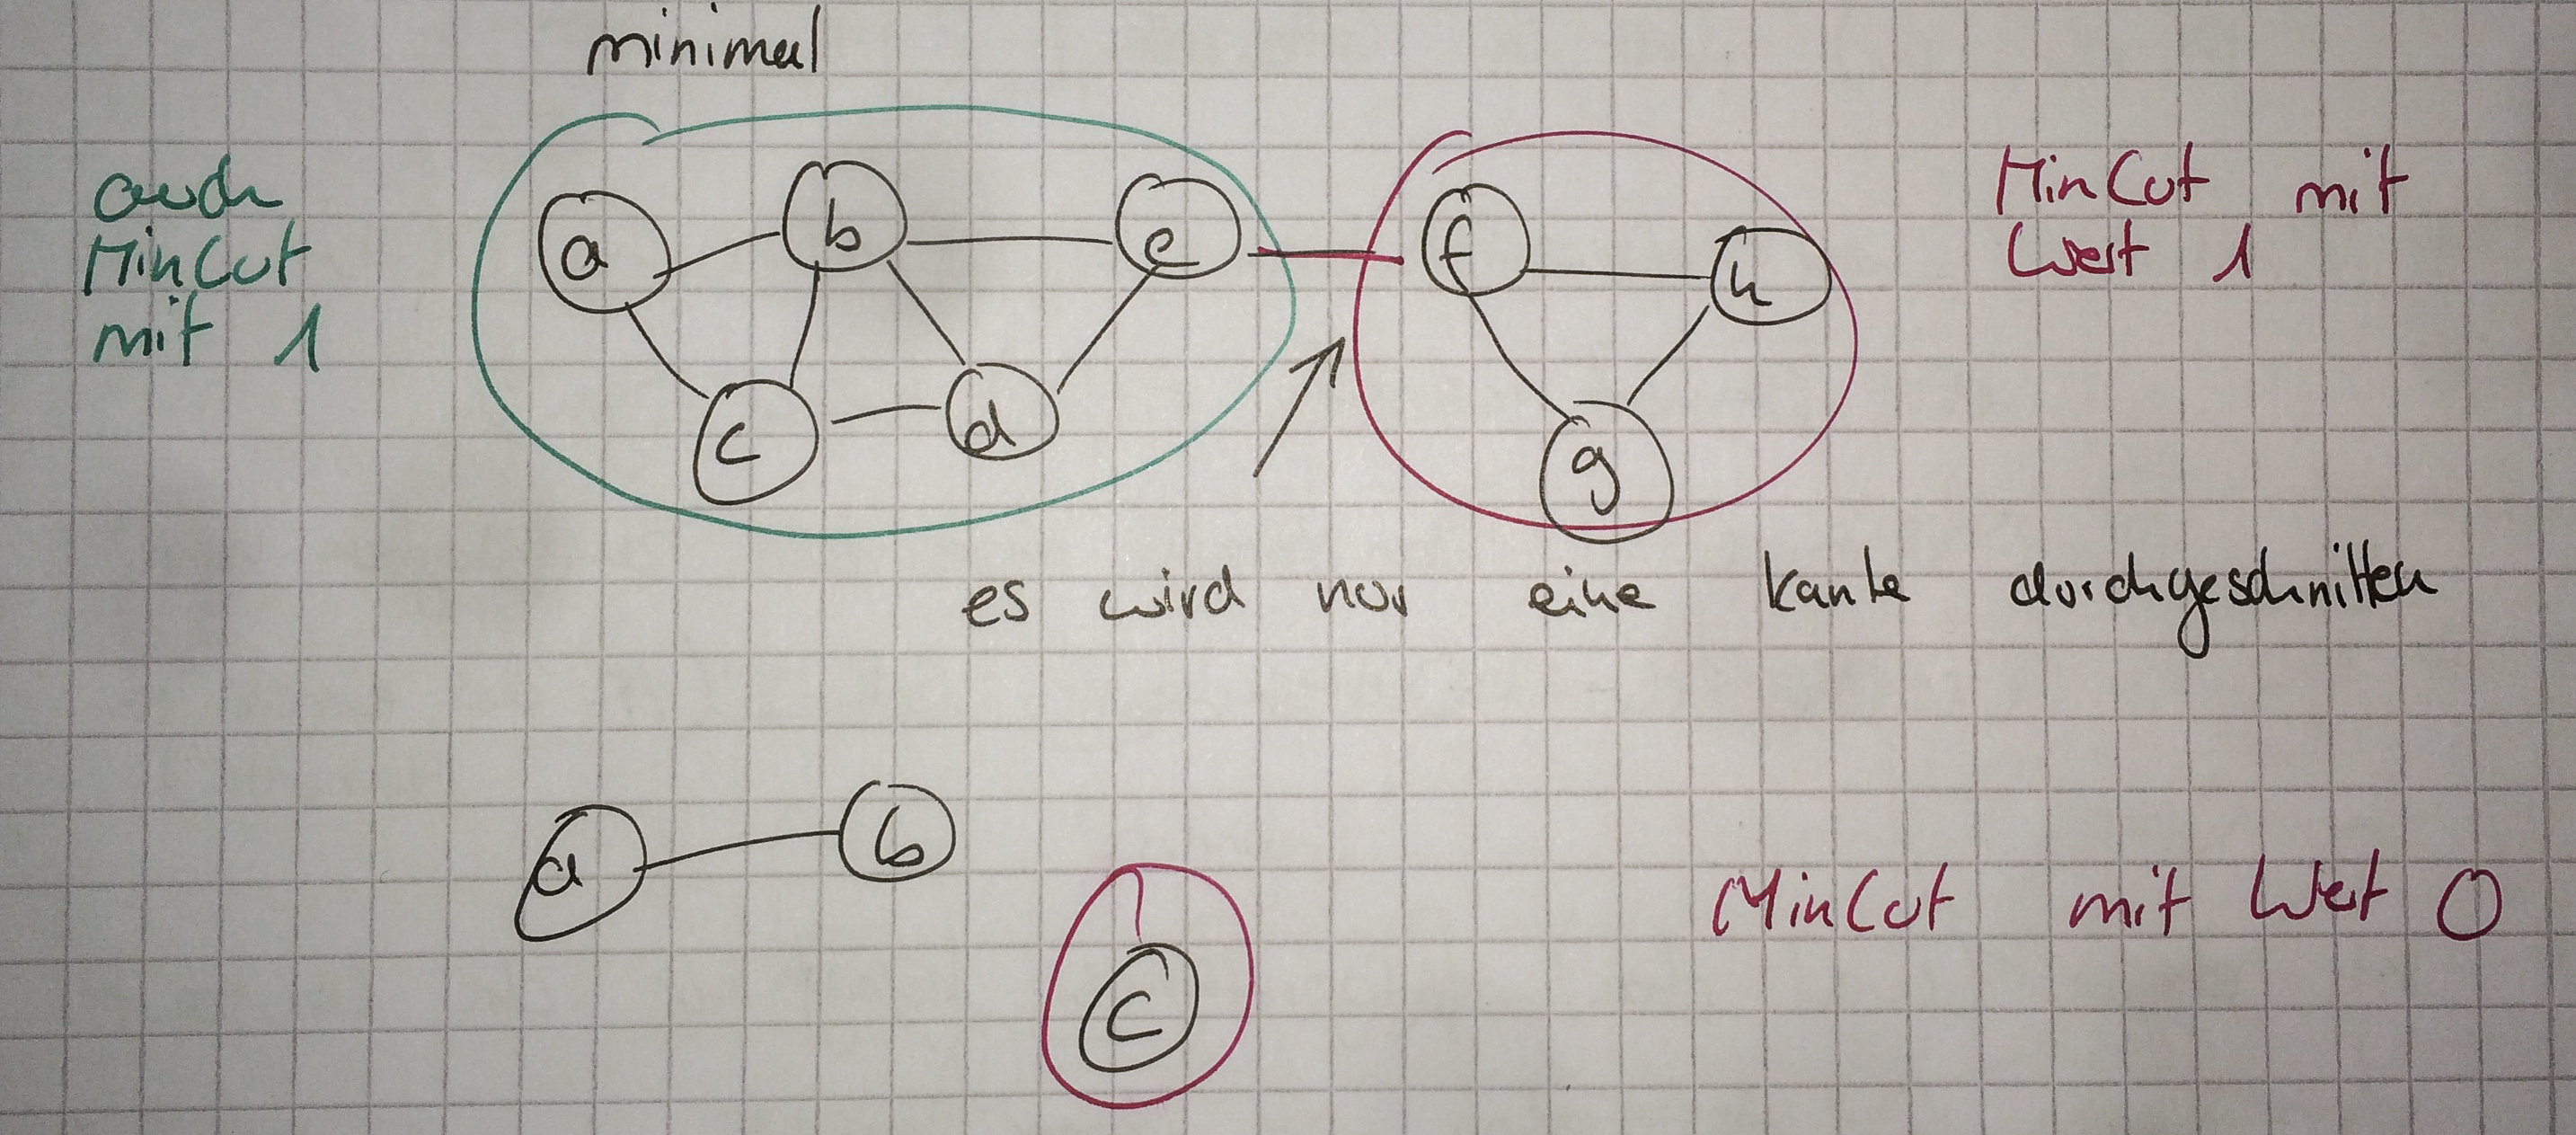 minimal
auch
MinCut
mit 1
a b e f h
c d g
MinCut mit
Wert 1
es wird nur eine kante durchgeschnitten
a b
c
MinCut mit Wert 0